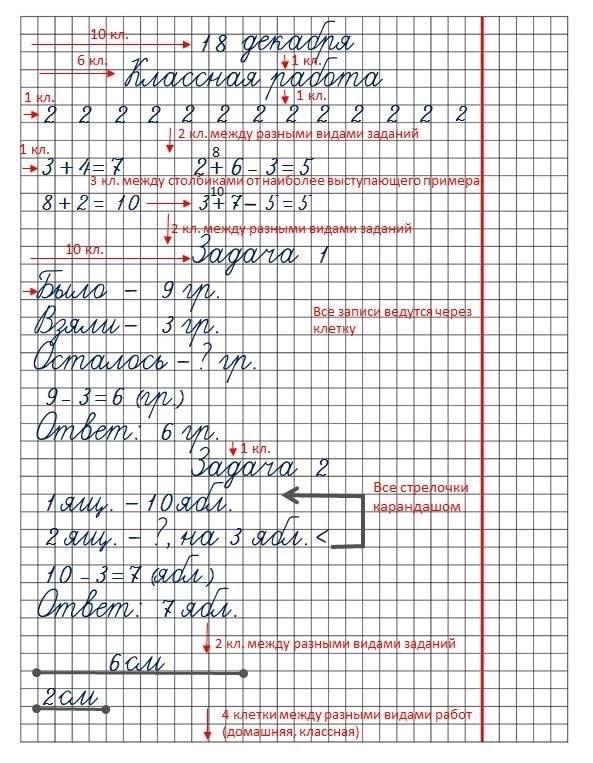 10 кл. 18 декабря
6 кл. Классная работа 1 кл.
1 кл. 1 кл.
2 2 2 2 2 2 2 2 2 2 2 2 2
2 кл. между разными видами заданий
1 кл. 8
3 + 4 = 7 2 + 6 - 3 = 5
3 кл. между столбиками от наиболее выступающего примера
10
8 + 2 = 10 3 + 7 - 5 = 5
2 кл. между разными видами заданий
10 кл. Задача 1
Было - 9 гр.
Все записи ведутся через
клетку
Взяли - 3 гр.
Осталось - ? гр.
9 - 3 = 6 (гр.)
Ответ: 6 гр.
1 кл.
Задача 2
Все стрелочки
карандашом
1 ящ. - 10 ябл.
2 ящ. - ?, на 3 ябл. <
10 - 3 = 7 (ябл.)
Ответ: 7 ябл.
2 кл. между разными видами заданий
6 см
2 см
4 клетки между разными видами работ
(домашняя, классная)